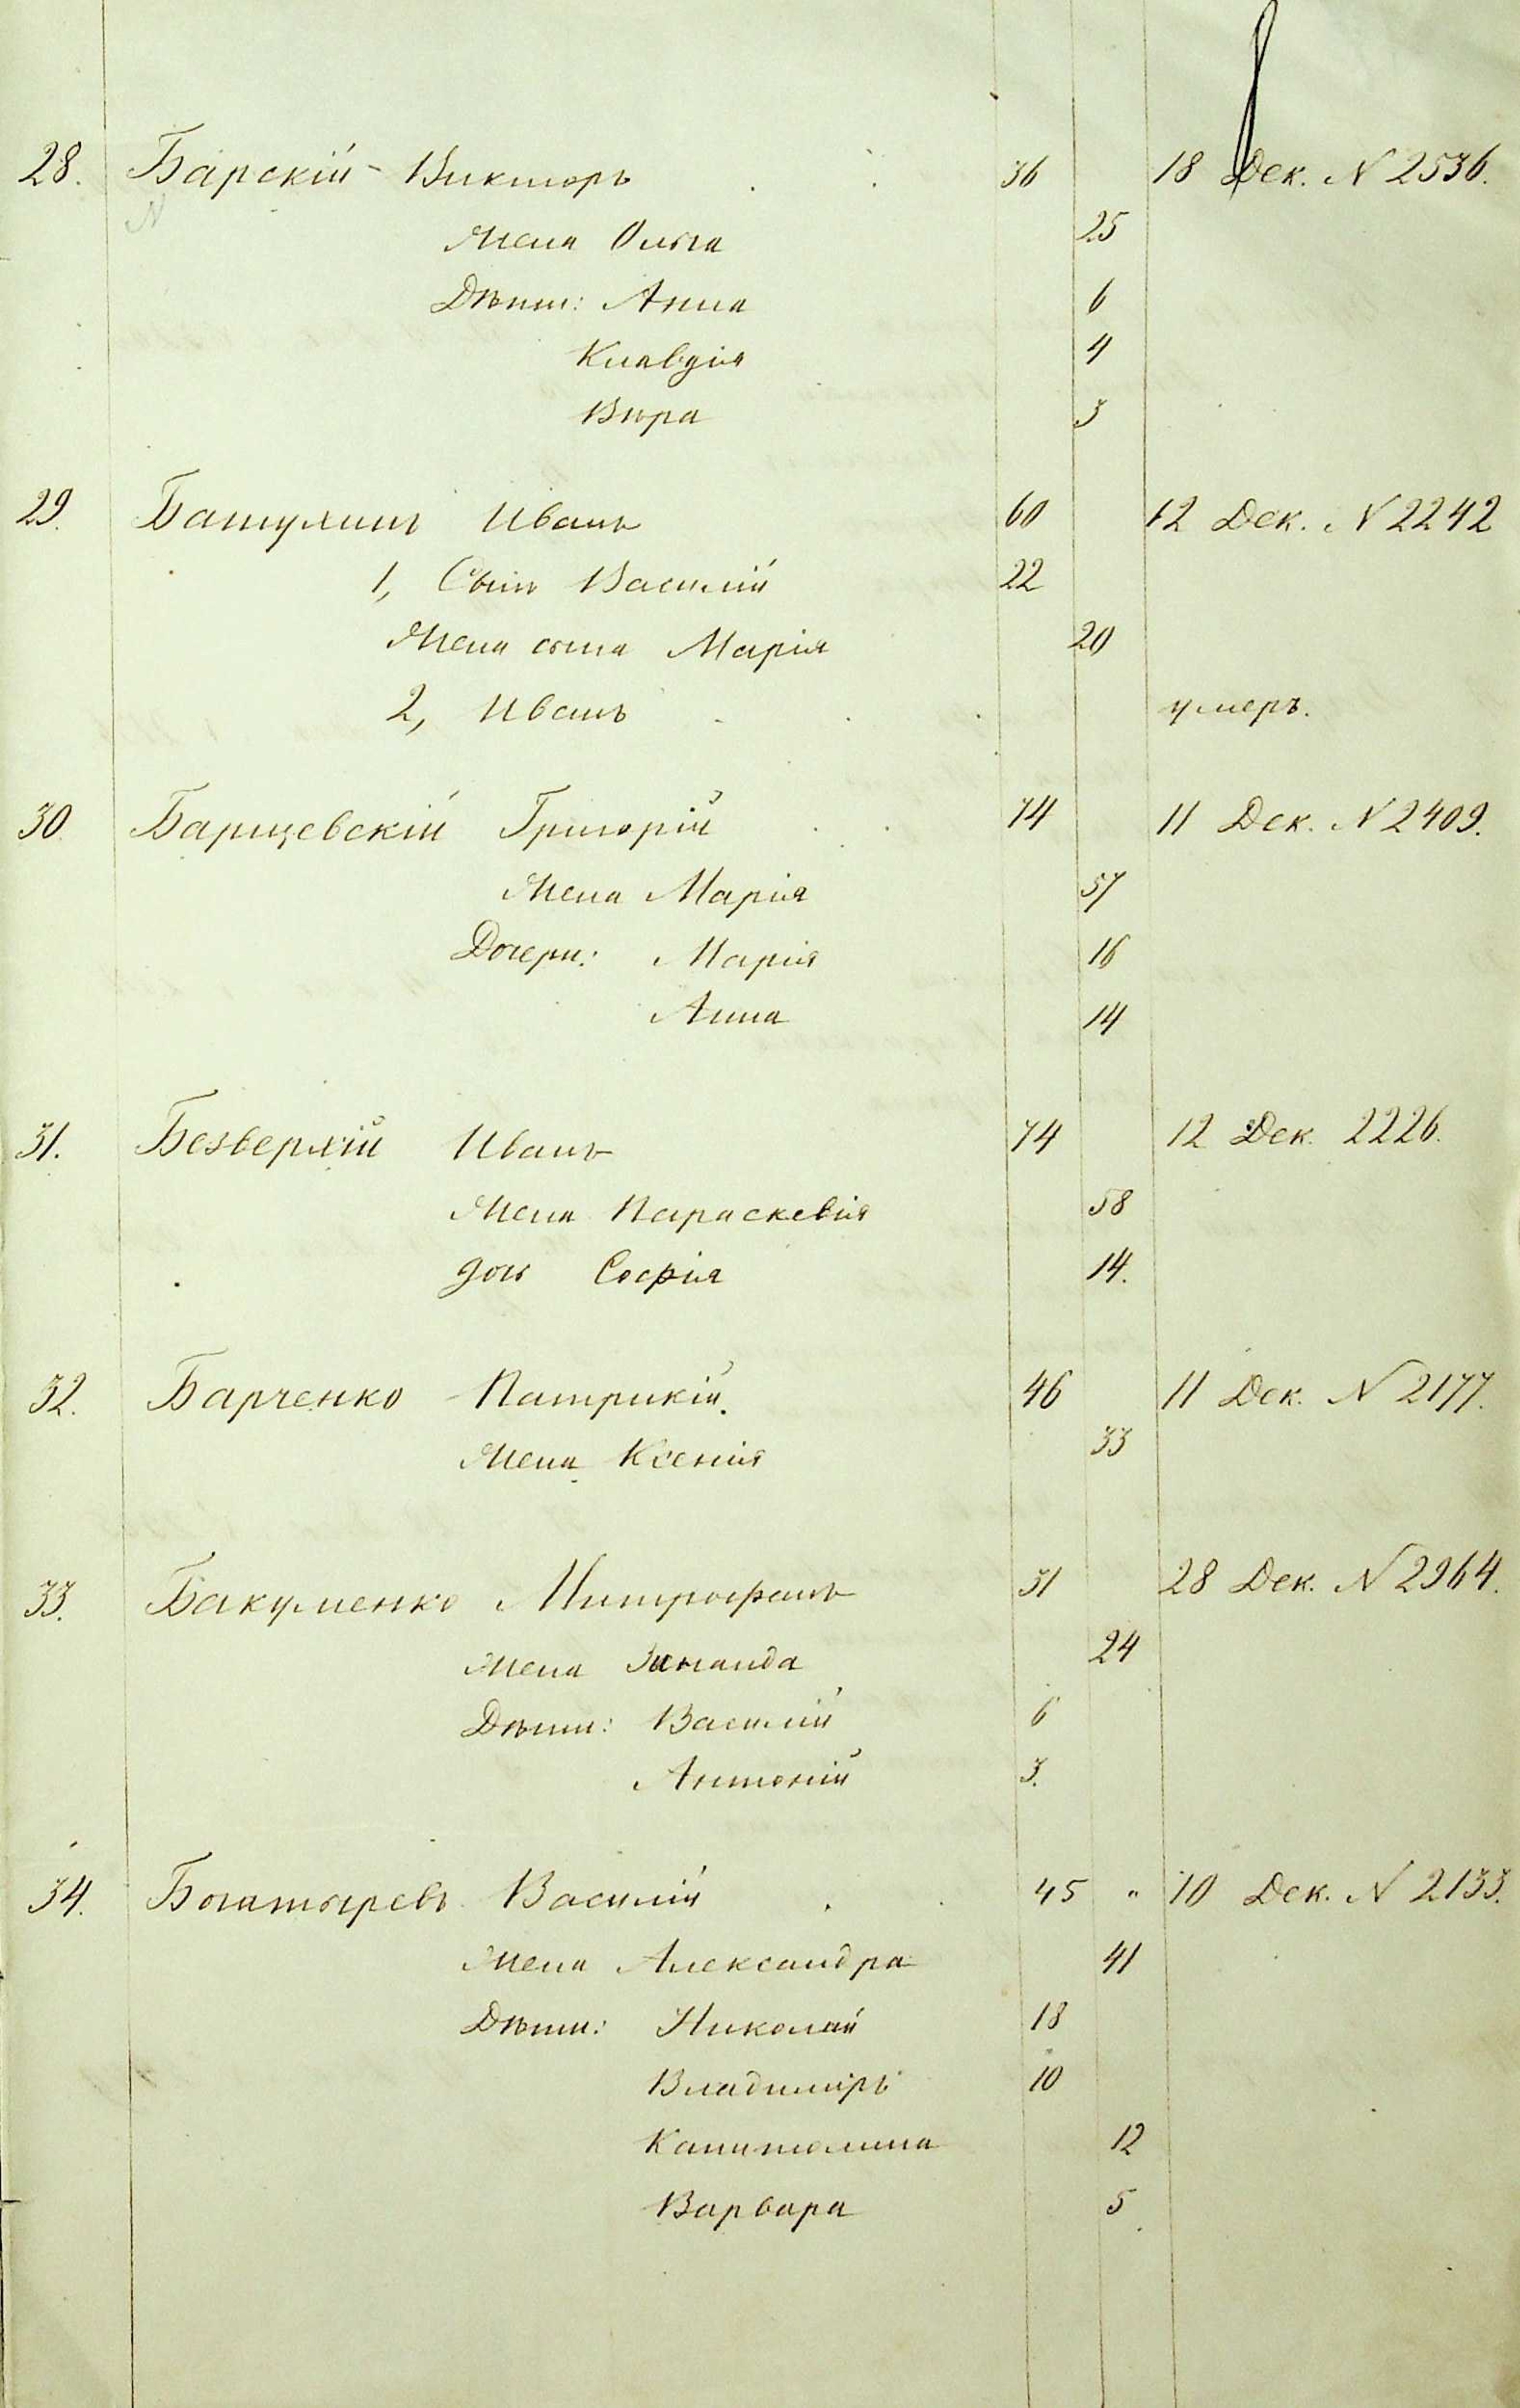 28. Барскій Викторъ 36 18 Дек. N 2536.
Жена Ольга 25
Дѣти: Анна 6
Клавдія 4
Вѣра 3
29. Батулинъ Иванъ 60 12 Дек. N 2242
1, Сынъ Василій 22
Жена сына Марія 20
2, Иванъ умеръ.
30. Барщевскій Григорій 74 11 Дек. N 2409.
Жена Марія 57
Дочери: Марія 16
Анна 14
31. Безверхій Иванъ 74 12 Дек. 2226.
Жена Параскевія 58
дочь Софія 14.
32. Барченко Патрикій. 46 11 Дек. N 2177.
Жена Ксенія 33
33. Бакуменко Митрофанъ 31 28 Дек. N 2964.
Жена Зинаида 24
Дѣти: Василій 6
Антоній 3.
34. Богатыревъ Василій 45 " 10 Дек. N 2133.
Жена Александра 41
Дѣти: Николай 18
Владиміръ 10
Капитолина 12
Варвара 5